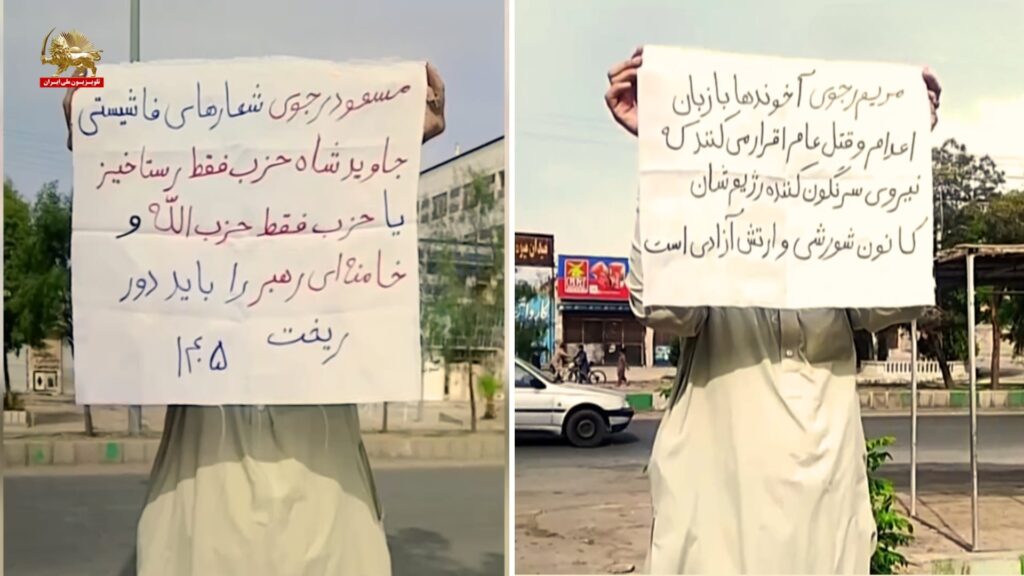 تلویزیون ملی ایران
مسعود رجوی شعارهای فاشیستی
جاوید شاه حزب فقط رستاخیز
یا حزب فقط حزب الله و
خامنه ای رهبر را باید دور
ریخت
۱۴۰۵
مریم رجوی آخوندها با زبان
اعدام و قتل عام اقرار می کنند که
نیروی سرنگون کننده رژیم شان
کانون شورشی و ارتش آزادی است